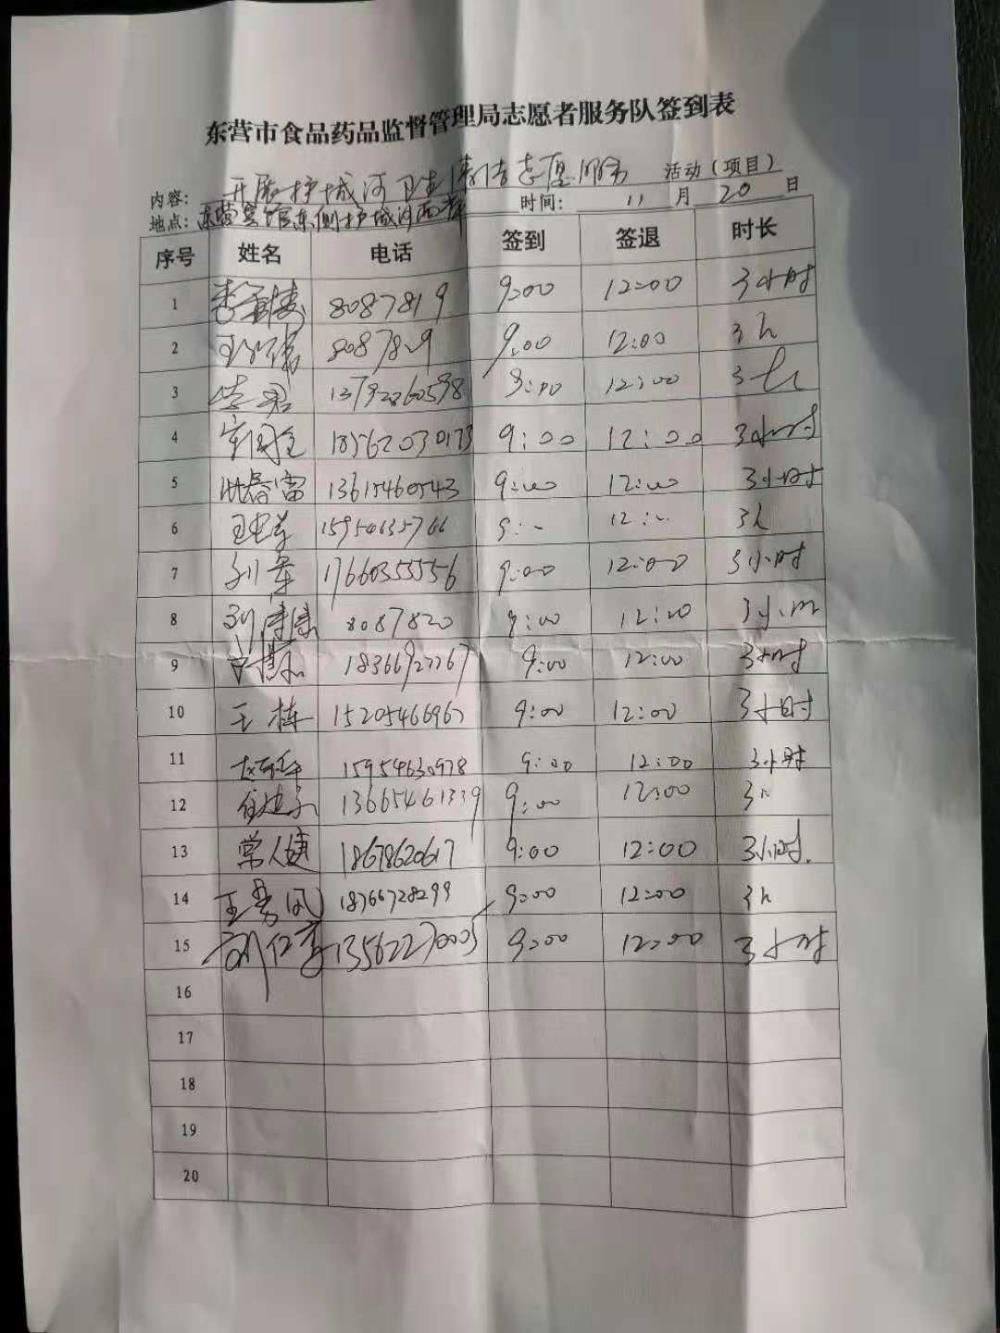 东营市食品药品监督管理局志愿者服务队签到表
内容: 开展护城河卫生清洁志愿服务 活动（项目）
地点: 东营宾馆东侧护城河西岸 时间: 11 月 20 日
序号 姓名 电话 签到 签退 时长
1 8087819 9:00 12:00 3小时
2 9:00 12:00 3h
3 李君 13792260598 9:00 12:00 3h
4 18562030173 9:00 12:00 3小时
5 13615460543 9:00 12:00 3小时
6 12:00 3h
7 刘军 17660355556 9:00 12:00 3小时
8 8087820 9:00 12:00 3小时
9 18366927267 9:00 12:00 3小时
10 王栋 15205466967 9:00 12:00 3小时
11 15954630978 9:00 12:00 3小时
12 13665461339 9:00 12:00 3h
13 常人婕 18678620617 9:00 12:00 3小时.
14 王秀凤 18766728299 9:00 12:00 3h
15 13562270005 9:00 12:00 3小时
16
17
18
19
20